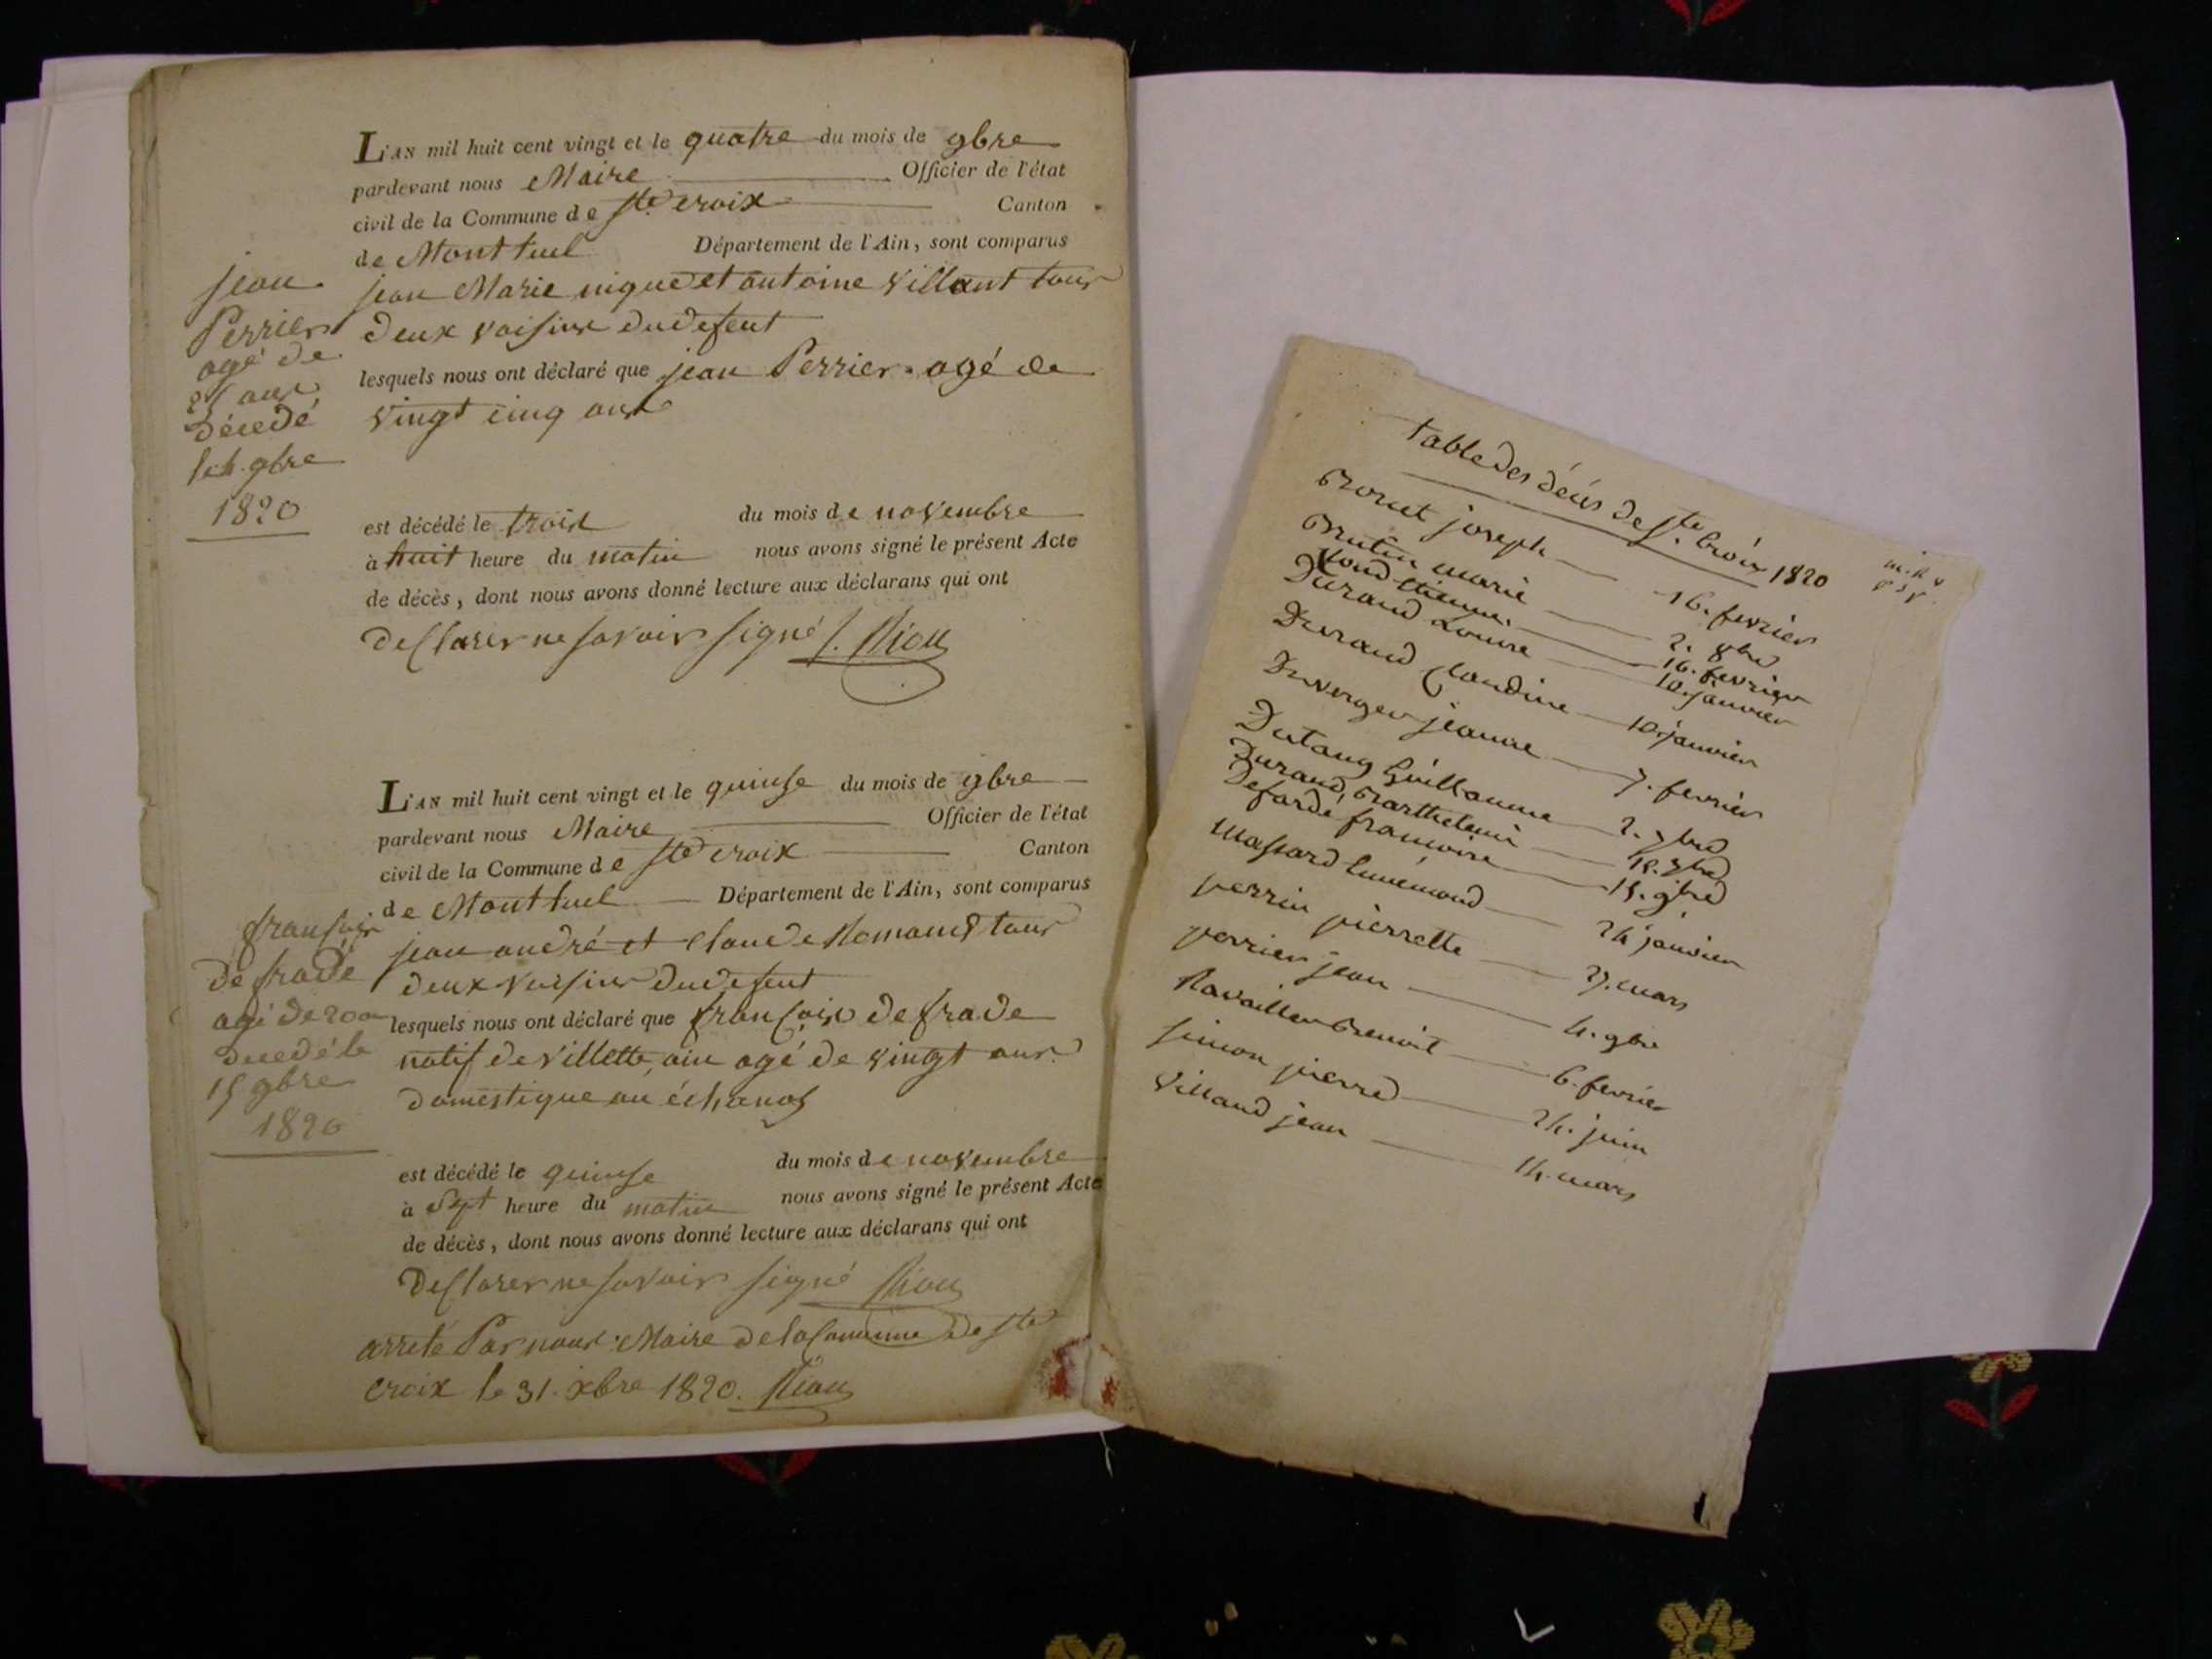 L'AN mil huit cent vingt et le quatre du mois de 9bre
pardevant nous Maire Officier de l'état
civil de la Commune de Ste croix Canton
de Montluel Département de l'Ain, sont comparus
jean Marie nique et antoine villant tous
deux voisins du defent
lesquels nous ont déclaré que jean Perrier agé de
vingt cinq ans
jean
Perrier
agé de
25 ans
décedé
le 4. 9bre
1820
est décédé le trois du mois de novembre
à huit heure du matin nous avons signé le présent Acte
de décès, dont nous avons donné lecture aux déclarans qui ont
declarer ne savoir signé
L'AN mil huit cent vingt et le quinse du mois de 9bre
pardevant nous Maire Officier de l'état
civil de la Commune de Ste croix Canton
de Montluel Département de l'Ain, sont comparus
jean andré et claude Romand tous
deux voisins du defent
lesquels nous ont déclaré que françois de frade
natif de villette, ain agé de vingt ans
domestique au échanos
françois
de frade
agé de 20 a
decedé le
15 9bre
1820
est décédé le quinse du mois de novembre
à sept heure du matin nous avons signé le présent Acte
de décès, dont nous avons donné lecture aux déclarans qui ont
declarer ne savoir signé
arreté Par nous Maire de la Commune de Ste
croix le 31. xbre 1820.
table des décès de Ste. Croix 1820
Borcet joseph 16. fevrier
Brutin marie 2. 8bre
Claud etienne 16. fevrier
Durand Louise 10. janvier
Durand Claudine 10. janvier
Duverger jeanne 7. fevrier
Dutang Guillaume 2. 7bre
Durand, Barthelemi 18. 7bre
Defardé francoise 15. 9bre
Massard Ennemond 24 janvier
perrin pierrette 27. mars
perrier jean 4. 9bre
Ravailler Benoit 6. fevrier
simon pierre 24. juin
Villand jean 14. mars